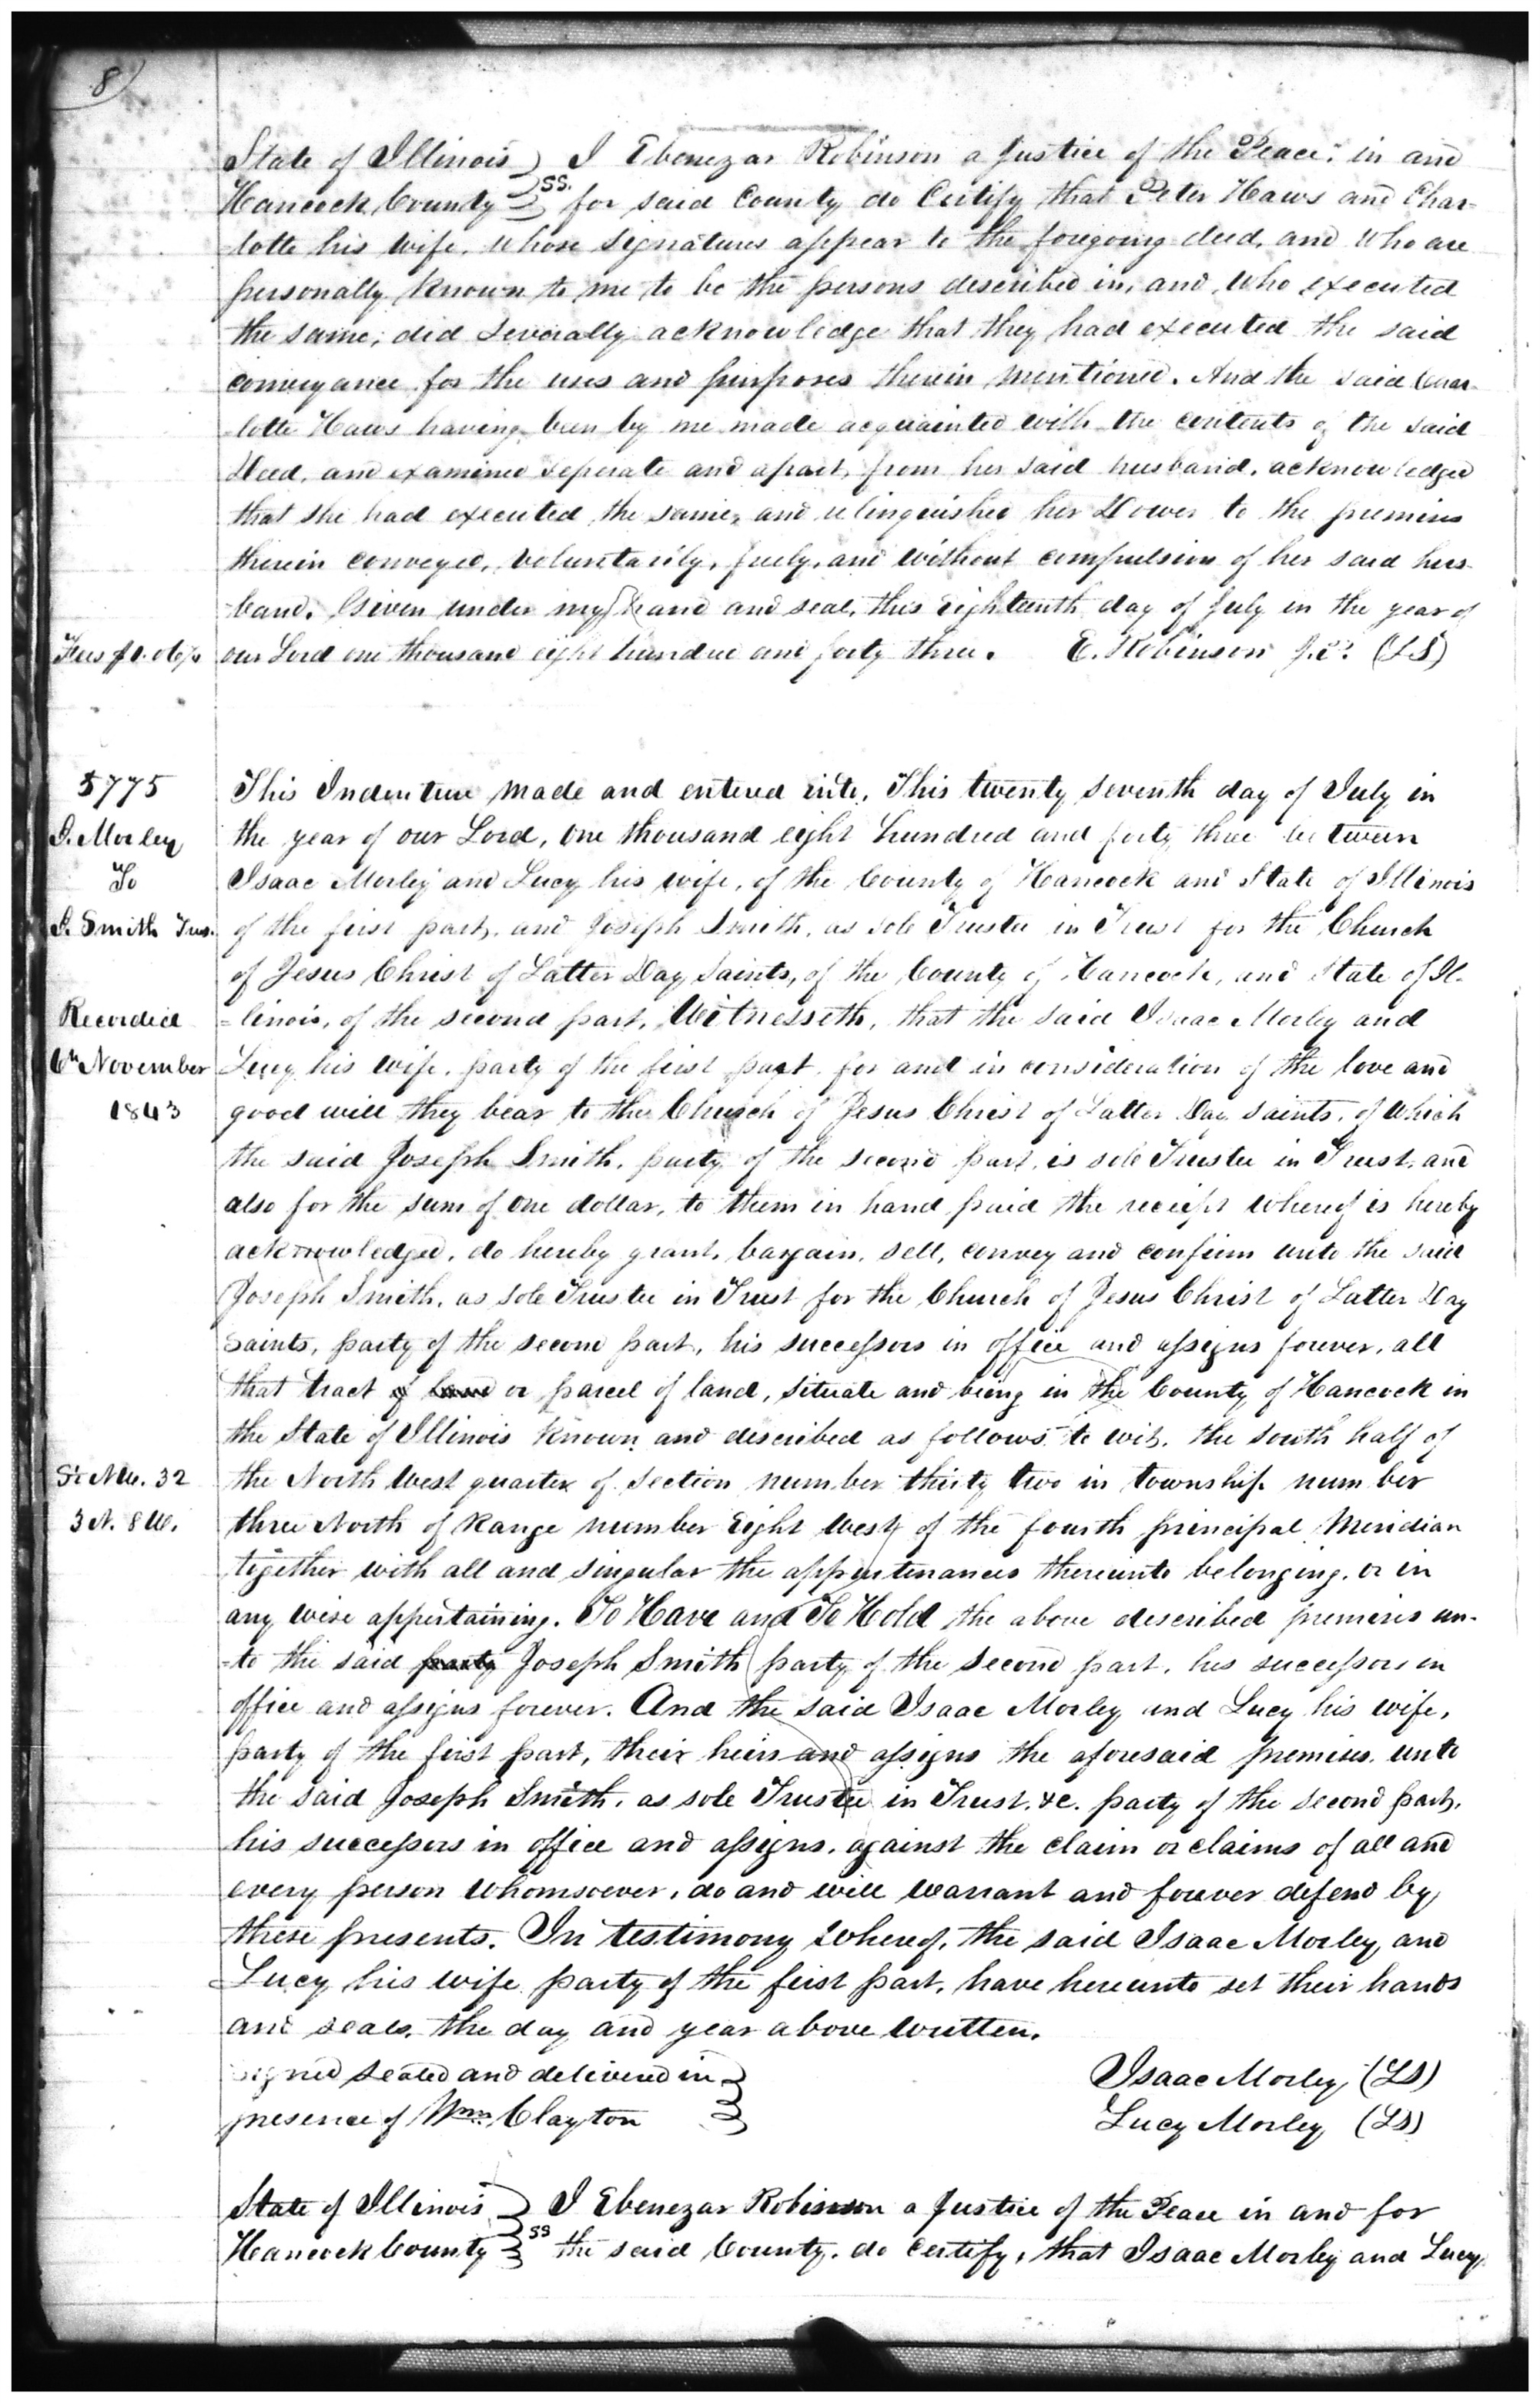 8
State of Illinois } I Ebenezar Robinson a Justice of the Peace, in and
Hancock County } ss. for said County do Certify that Peter Haws and Char=
lotte his wife, whose signatures appear to the foregoing deed, and who are
personally known to me to be the persons described in, and who executed
the same, did severally acknowledge that they had executed the said
conveyance for the uses and purposes therein mentioned. And the said Char-
-lotte Haws having been by me made acquainted with the contents of the said
Deed, and examined seperate and apart, from her said husband, acknowledged
that she had executed the same, and relinquished her Dower to the premises
therein conveyed, voluntarily, freely, and without compulsion of her said hus-
band. Given under my hand and seal, this eighteenth day of July in the year of
Fees
our Lord one thousand eight hundred and forty three. E. Robinson J.P. (LS)
5775
This Indenture made and entered into, This twenty seventh day of July in
I. Morley
the year of our Lord, one thousand eight hundred and forty three between
To
Isaac Morley and Lucy his wife, of the County of Hancock and State of Illinois
J. Smith Trus.
of the first part, and Joseph Smith, as sole Trustee in Trust for the Church
of Jesus Christ of Latter Day Saints, of the County of Hancock, and State of Il-
Recorded
=linois, of the second part, Witnesseth, that the said Isaac Morley and
6th November
Lucy his wife, party of the first part, for and in consideration of the love and
1843
good will they bear to the Church of Jesus Christ of Latter Day Saints, of which
the said Joseph Smith, party of the second part, is sole Trustee in Trust, and
also for the sum of one dollar, to them in hand paid the receipt whereof is hereby
acknowledged, do hereby grant, bargain, sell, convey and confirm unto the said
Joseph Smith, as sole Trustee in Trust for the Church of Jesus Christ of Latter Day
Saints, party of the second part, his successors in office and assigns forever, all
that tract of land or parcel of land, situate and being in the County of Hancock in
the State of Illinois known and described as follows to wit. the south half of
S½ NW. 32
the North West quarter of section number thirty two in township number
3 N. 8 W.
three North of Range number Eight West of the fourth principal Meridian
together with all and singular the appurtenances thereunto belonging, or in
any wise appertaining. To Have and To Hold the above described premises un-
=to the said party Joseph Smith party of the second part, his successors in
office and assigns forever. And the said Isaac Morley and Lucy his wife,
party of the first part, their heirs and assigns the aforesaid premises unto
the said Joseph Smith, as sole Trustee in Trust, &c. party of the second part,
his successors in office and assigns, against the claim or claims of all and
every person whomsoever, do and will warrant and forever defend by
these presents. In testimony whereof, the said Isaac Morley and
Lucy his wife party of the first part, have hereunto set their hands
and seals, the day and year above written.
Signed sealed and delivered in } Isaac Morley (LS)
presence of Wm. Clayton } Lucy Morley (LS)
State of Illinois } I Ebenezar Robinson a Justice of the Peace in and for
Hancock County } ss the said County, do certify, that Isaac Morley and Lucy